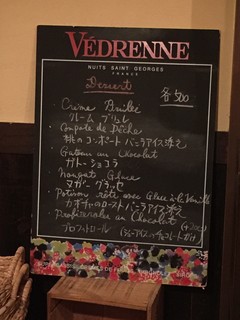 VÉDRENNE
NUITS SAINT GEORGES
FRANCE
Dessert
各500
Crème Brulée
クレーム ブリュレ
Compote de Pêche
桃のコンポート バニラアイス添え
Gateau au Chocolat
ガトーショコラ
Nougat Glace
ヌガー グラッセ
Potiron rôti avec Glace à la Vanille
カボチャのロースト バニラアイス添え
Profiterole au Chocolat
プロフィトロール